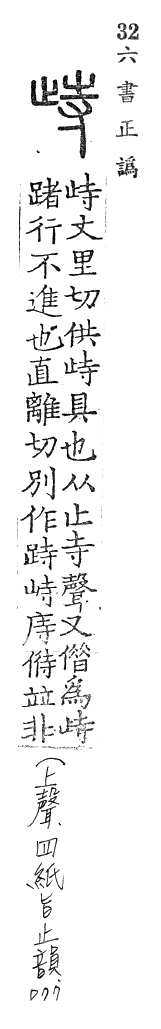 32六書正譌
峙
峙丈里切供峙具也从止寺聲又借爲峙
踷行不進也直離切別作跱峙庤偫竝非
(上聲四紙旨止韻